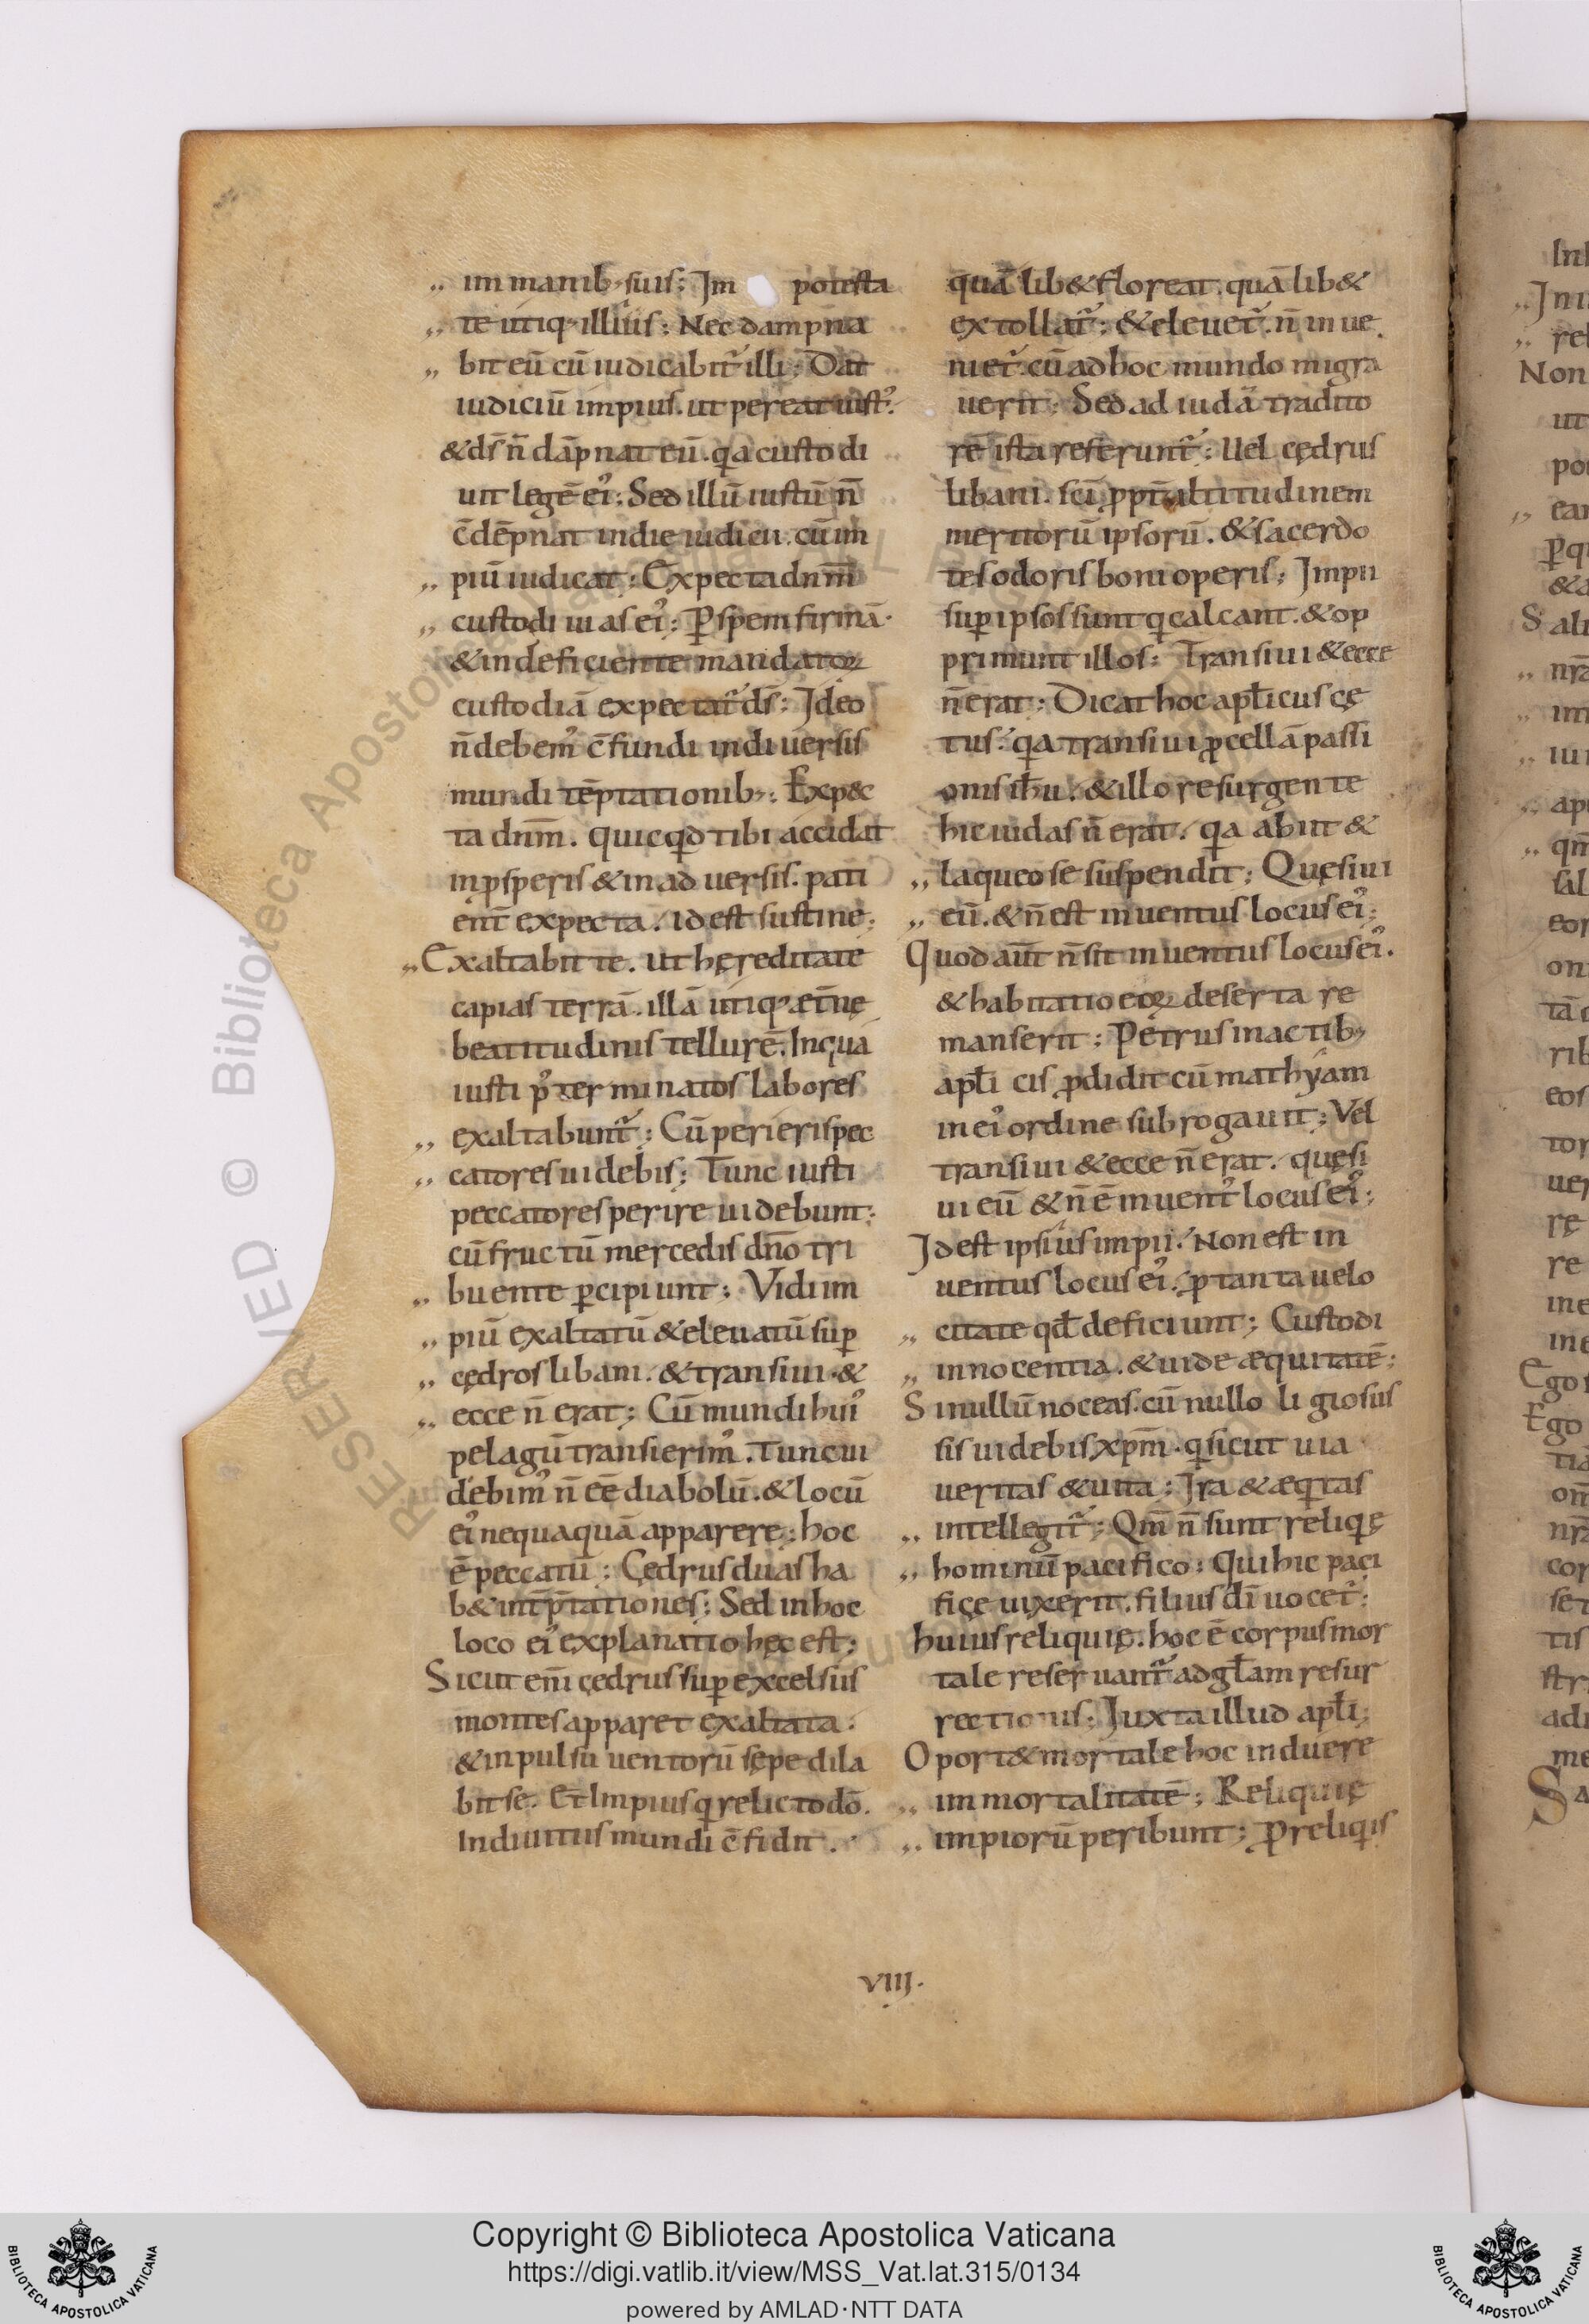 im manib; suis; Im potesta
te utiq; illius; Nec dampna
bit eū cū iudicabit᷑ illi; Dat
iudiciū impius. ut pereat iust᾿.
& ds̄ n̄ dāpnat eū. qa custodi
uit legē ei᾿; Sed illū iustū n̄
c̄dēpnat in die iudicii. cū im
piū iudicat; Expecta dnm̄
custodi uias ei᾿; P̱ spem firmā.
& indeficiente mandatoꝝ
custodiā expectat᷑ ds̄; Ideo
n̄ debem᾿ c̄fundi in diuersis
mundi tēptationib;; Expec
ta dnm̄. quicqd tibi accidat
in ꝓsperis & in aduersis. pati
ent̄ expecta. id est sustine;
Exaltabit te. ut hęreditate
capias terrā. illā utiq; æt̄nę
beatitudinis tellurē. In qua
iusti p᾿ terminatos labores
exaltabunt᷑; Cū perieris pec
catores uidebis; Tunc iusti
peccatores perire uidebunt;
cū fructū mercedis dn̄o tri
buente ꝑcipiunt; Vidi im
piū exaltatū & eleuatū suꝑ
cędros libani. & transiui. &
ecce n̄ erat; Cū mundi hui᾿
pelagū transierim᾿. Tunc ui
debim᾿ n̄ eē diabolū. & locū
ei᾿ nequaquā apparere; hoc
ē peccatū; Cędrus duas ha
b& int̄p̄tationes; Sed in hoc
loco ei᾿ explanatio hęc est;
Sicut enī cędrus suꝑ excelsus
montes apparet exaltata.
& inpulsu uentorū sępe dila
bit se. Et Impius q relicto dō.
In diuitiis mundi c̄fidit.
quā lib& floreat. quā lib&
extollat᷑; & eleuet᷑. n̄ inue
niet᷑. cū ad hoc mundo migra
uerit; Sed ad iudā tradito
rē ista referunt᷑; Uel cędrus
libani. scī ꝓpt̄ altitudinem
meritorū ipsorū. & sacerdo
tes odoris boni operis; Impii
suꝑ ipsos sunt q calcant. & op
primunt illos; Transiui & ecce
n̄ erat; Dicat hoc apl̄icus cę
tus. qa transiui ꝓcellā passi
onis ih̄u. & illo resurgente
hic iudas n̄ erat. qa abiit &
laqueo se suspendit; Quęsiui
eū. & n̄ est inuentus locus ei᾿;
Quod aut̄ n̄ sit inuentus locus ei᾿.
& habitatio eoꝝ deserta re
manserit; Petrus in actib;
apl̄icis ꝓdidit cū mathyam
in ei᾿ ordine subrogauit; Vel
transiui & ecce n̄ erat. quęsi
ui eū & n̄ ē inuent᾿ locus ei᾿;
Id est ipsius impii. Non est in
uentus locus ei᾿. ꝓ tanta uelo
citate qd̄ deficiunt; Custodi
innocentia. & uide æquitatē;
Si nullū noceas. cū nullo ligiosus
sis uidebis xpm̄. q sicut uia
ueritas & uita; Ira & æqtas
intellegit᷑; Qm̄ n̄ sunt reliqę
hominū pacifico; Qui hic paci
fice uixerit. filius dī uocet᷑;
huius reliquię. hoc ē corpus mor
tale reseruant᷑ ad gl̄am resur
rectionis; Iuxta illud apl̄i;
Oport& mortale hoc induere
immortalitatē; Reliquię
impiorū peribunt; Ꝓ reliqis
VIII.
Copyright © Biblioteca Apostolica Vaticana
https://digi.vatlib.it/view/MSS_Vat.lat.315/0134
powered by AMLAD·NTT DATA